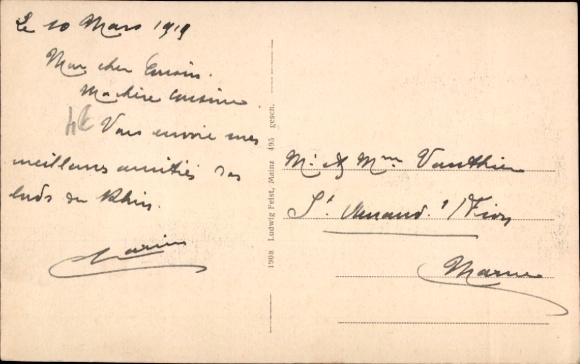 Le 10 Mars 1919
Mon cher Cousin.
Ma chère Cousine.
Vous envoie mes
meilleures amitiés des
bords du Rhin.
Mr & Mme Vauthier
St Amand s/ Fion
Marne
1908 Ludwig Feist, Mainz 495 gesch.